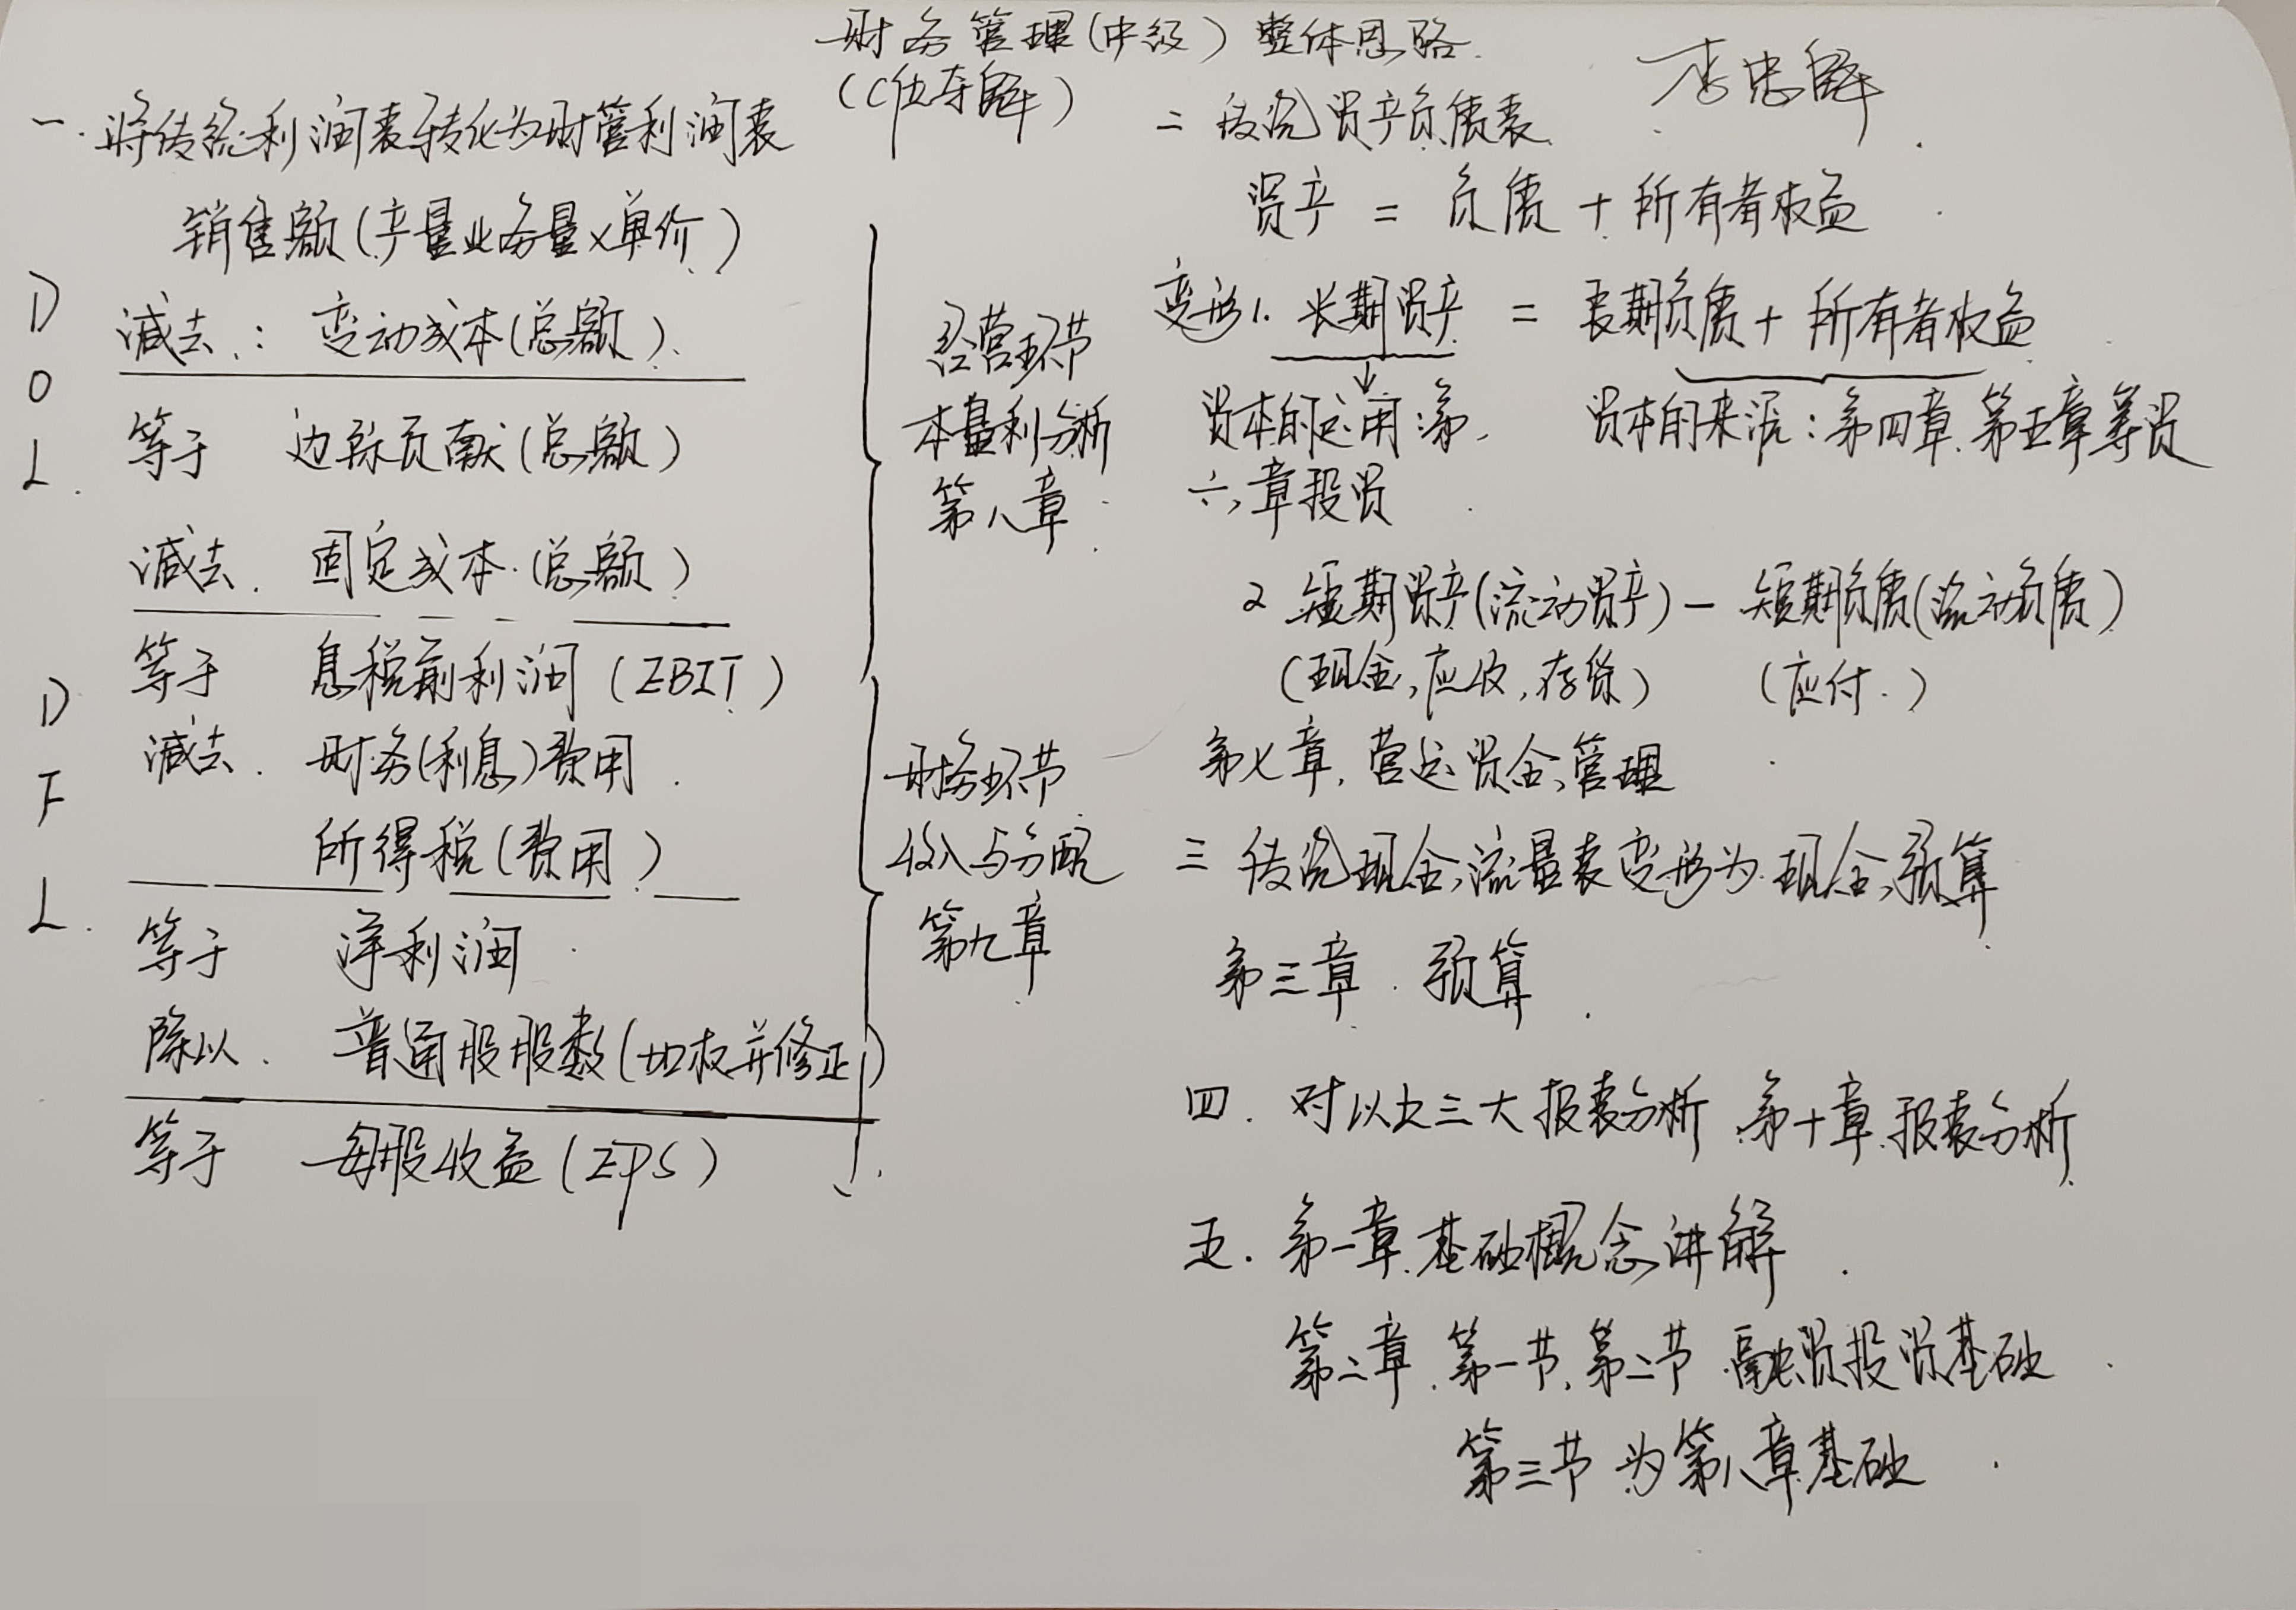 财务管理(中级)整体思路
(C位夺魁)
李忠魁
一.将传统利润表转化为财管利润表
销售额(产量业务量×单价)
减去:变动成本(总额)
等于 边际贡献(总额)
减去.固定成本.(总额)
等于 息税前利润(EBIT)
减去.财务(利息)费用.
所得税(费用)
等于 净利润
除以.普通股股数(加权并修正)
等于 每股收益(EPS)
D
O
L.
D
F
L.
经营环节
本量利分析
第八章
财务环节
收入与分配
第九章
二 传统资产负债表
资产 = 负债 + 所有者权益
变形1.长期资产 = 长期负债 + 所有者权益
资本的运用:第
六章投资
资本的来源:第四章.第五章筹资
2 短期资产(流动资产) - 短期负债(流动负债)
(现金,应收,存货) (应付.)
第七章,营运资金管理
三 传统现金流量表变形为现金预算
第三章.预算
四.对以上三大报表分析 第十章.报表分析
五.第一章.基础概念讲解
第二章.第一节,第二节 融资投资基础
第三节为第八章基础